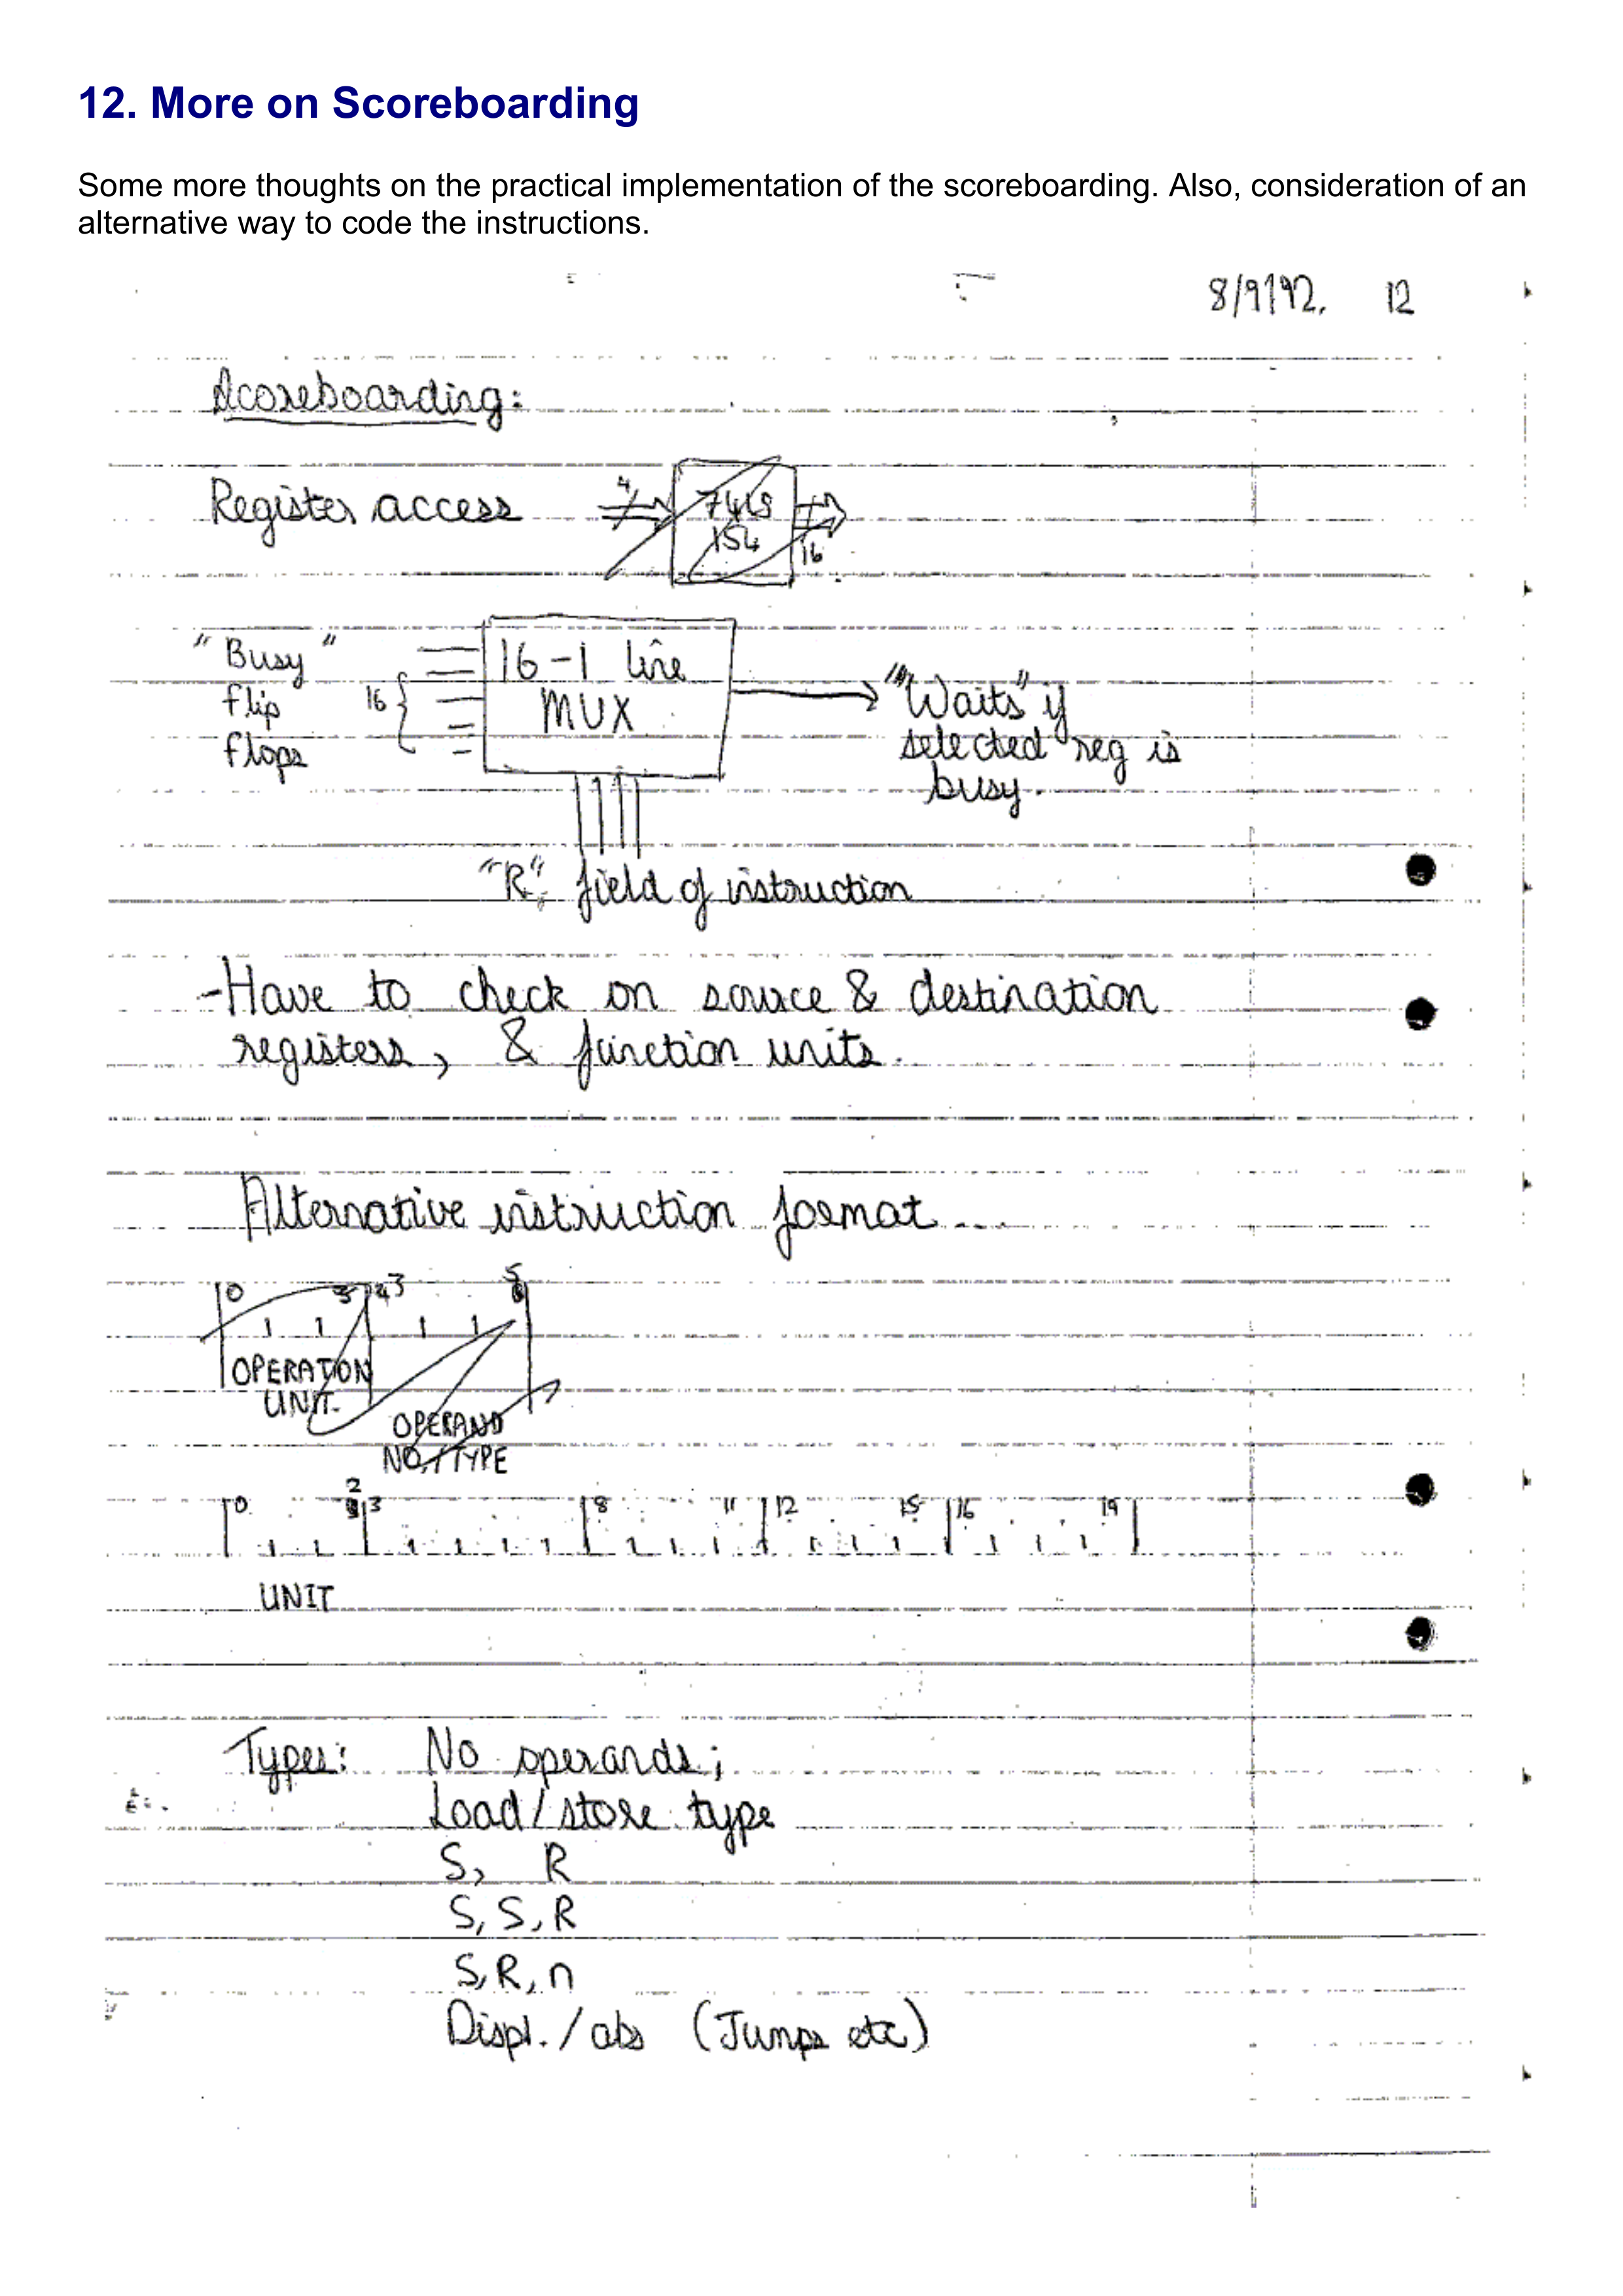 12. More on Scoreboarding
Some more thoughts on the practical implementation of the scoreboarding. Also, consideration of an
alternative way to code the instructions.
8/9/92. 12
Scoreboarding:
Register access
4
74LS
154
16
"Busy"
flip
flops
16
16-1 line
MUX
"Waits" if
selected reg is
busy.
"R" field of instruction
-Have to check on source & destination
registers, & function units.
Alternative instruction format...
0 3 5
OPERATION
UNIT
OPERAND
NO./TYPE
2
0 3 8 11 12 15 16 19
UNIT
Types: No operands;
Load/store type
S, R
S, S, R
S, R, n
Displ./abs (Jumps etc)